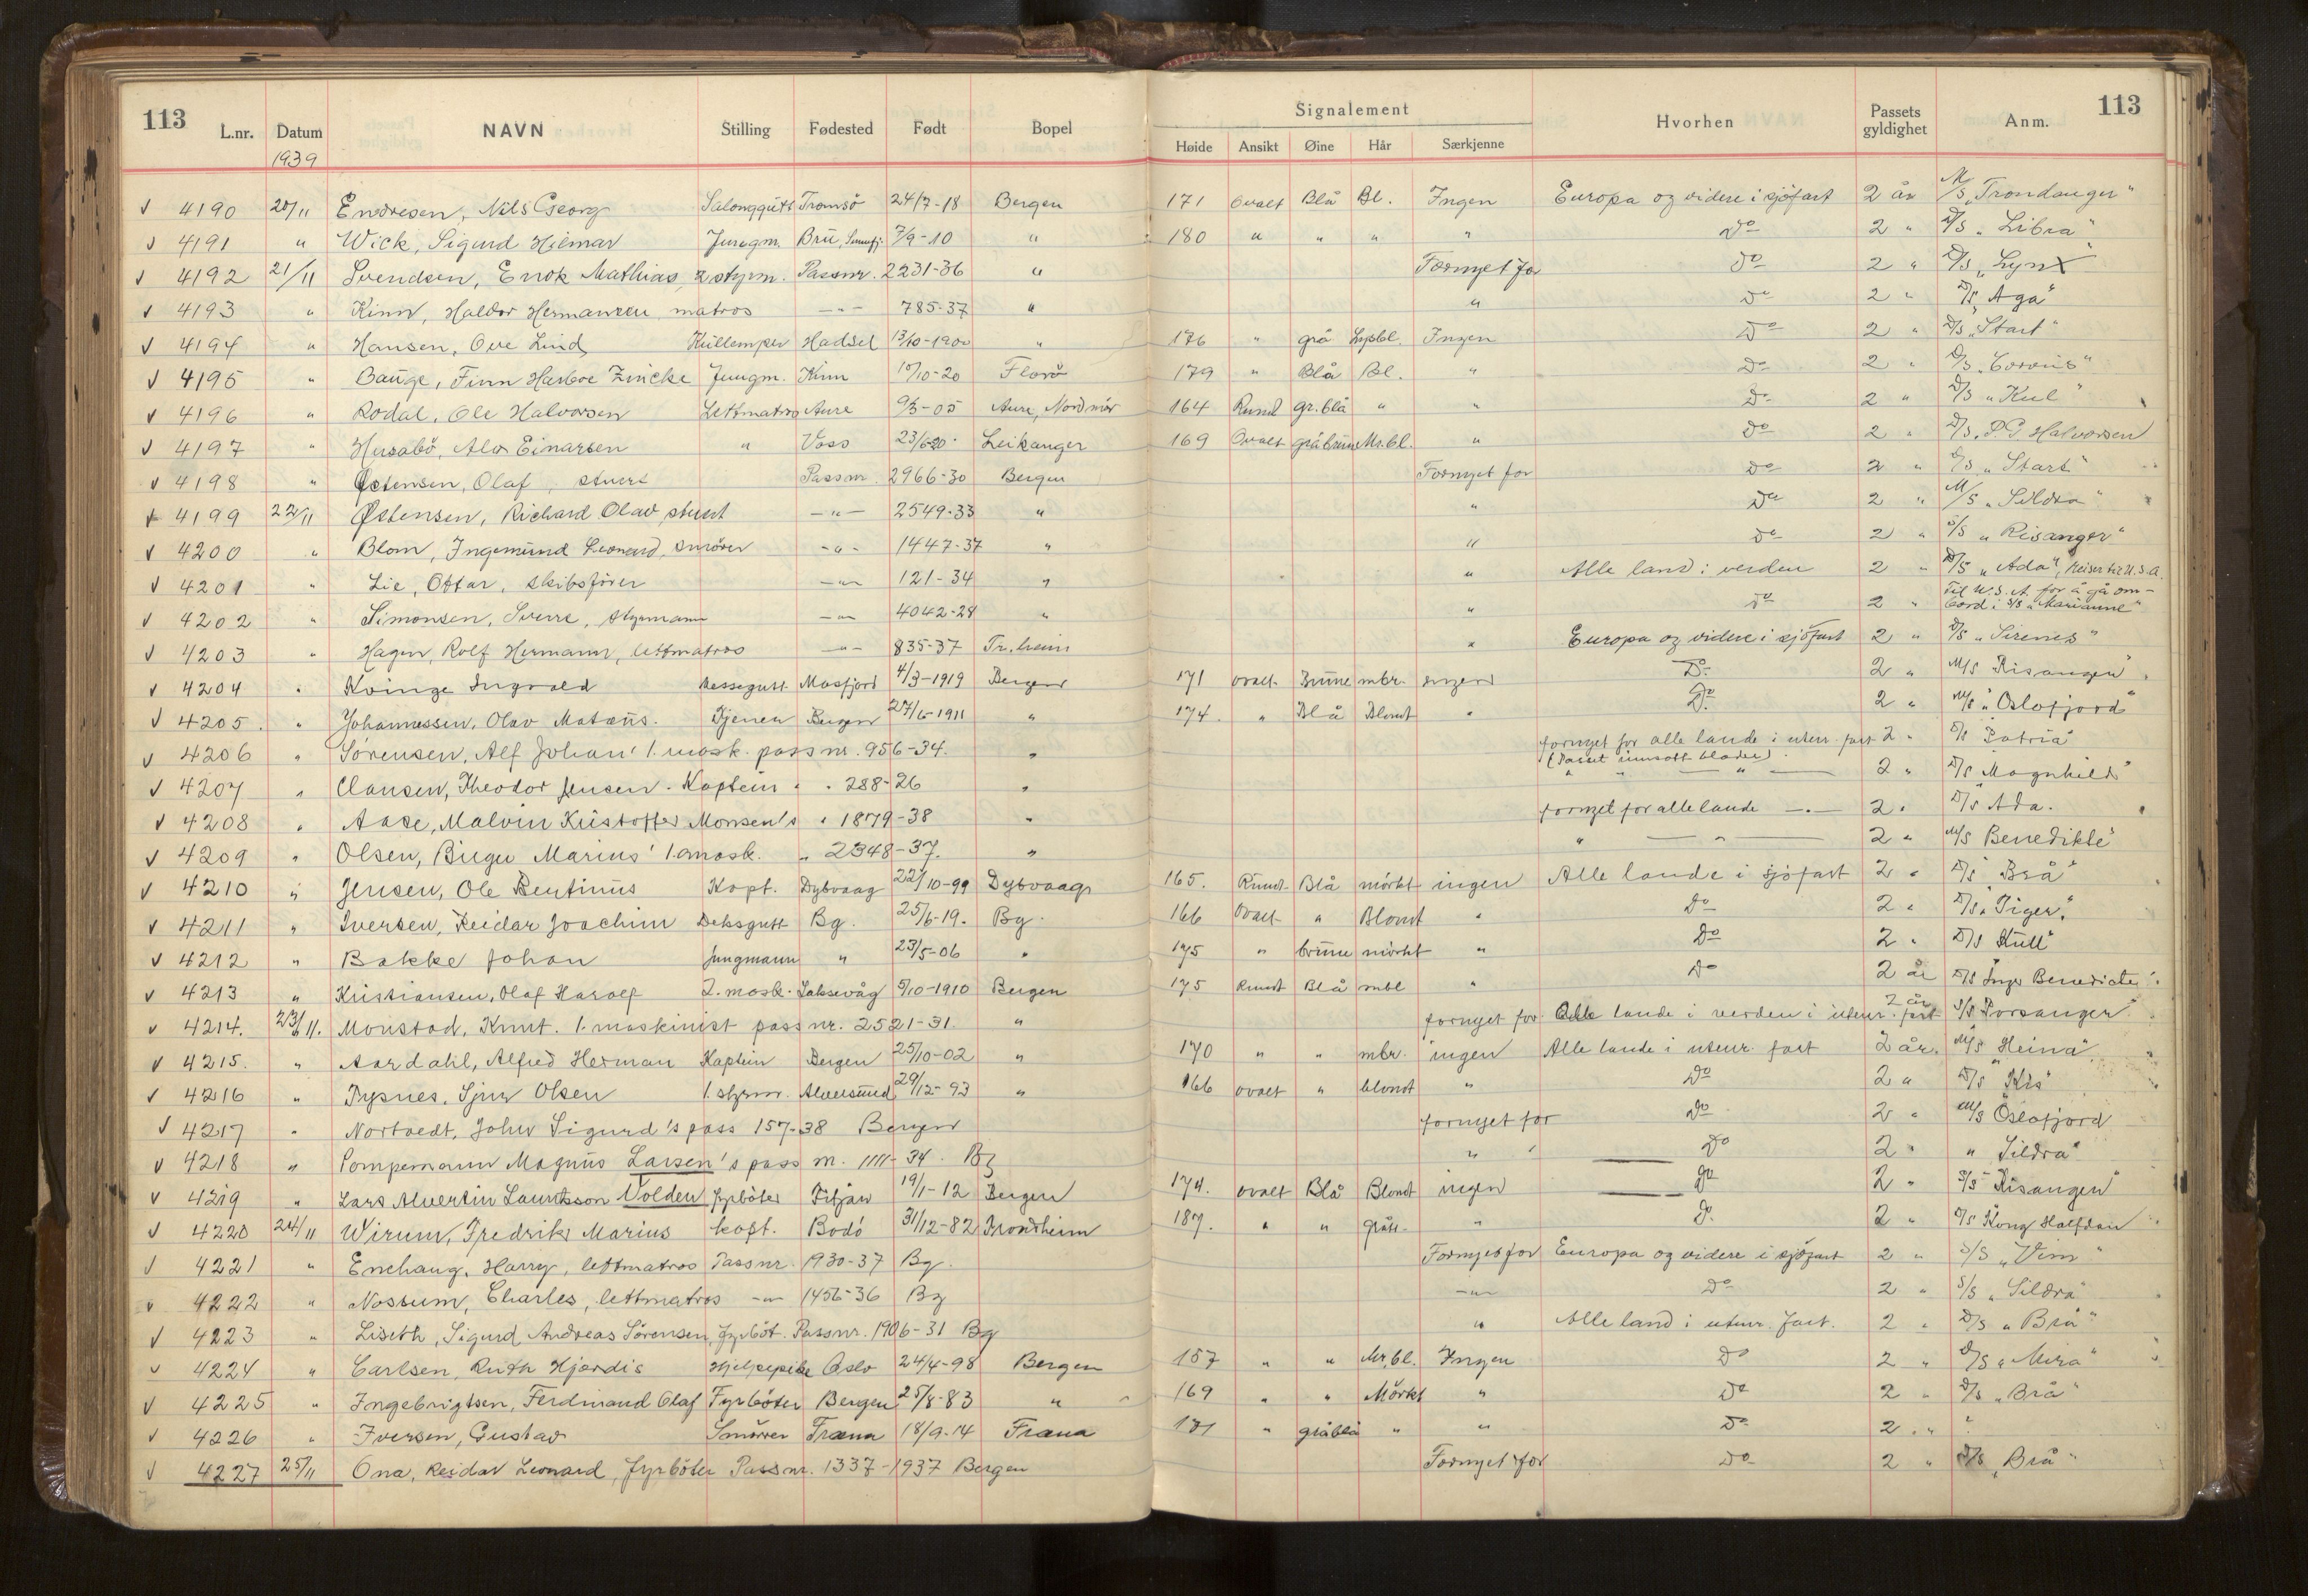 113 113
Signalement
L.nr. Datum NAVN Stilling Fødested Født Bopel Høide Ansikt Øine Hår Særkjenne Hvorhen Passets gyldighet Anm.
1939
4190 20/11 Endresen, Nils Georg Salonggutt Tromsö 24/7-18 Bergen 171 Ovalt Blå Bl. Ingen Europa og videre i sjöfart 2 år M/S „Trondanger"
4191 " Wick, Sigurd Hilmar Jungm. Bru, 7/9-10 " 180 " " " " Do 2 " D/S „Libra"
4192 21/11 Svendsen, Enok Mathias, 2 styrm. Passnr. 2231-36 " Fornyet for Do 2 " D/S „Lynx"
4193 " Kinn, Haldor Hermansen matros -"- 785-37 " " Do 2 " D/S „Aga"
4194 " Hansen, Ove Lind Kullemper Hadsel 13/10-1900 " 176 " grå Lysbl. Ingen Do 2 " D/S „Start"
4195 " Bauge, Finn Harboe Zincke Jungm. Kinn 10/10-20 Florö 179 " Blå Bl. " Do 2 " D/S „Corvus"
4196 " Rodal, Ole Halvorsen Lettmatros Aure 9/3-05 Aure, Nordmör 164 Rund gr.blå " " Do 2 " D/S „Kul"
4197 " Husabö, Alv Einarsen " Voss 23/6-20 Leikanger 169 Ovalt gråbrune Mr.bl. " Do 2 " D/S „P.G. Halvorsen
4198 " Østensen, Olaf, stuert Passnr. 2966-30 Bergen Fornyet for Do 2 " D/S „Start"
4199 22/11 Østensen, Richard Olav, stuert -"- 2549-33 " " Do 2 " M/S „Sildra"
4200 " Blom, Ingemund Leonard, smörer -"- 1447-37 " " Do 2 " S/S „Risanger"
4201 " Lie, Ottar, skibsförer -"- 121-34 " " Alle land i verden 2 " D/S „Ada", Reiser til U.S.A.
4202 " Simonsen, Sverre, styrmann -"- 4042-28 " " Do 2 " Til U.S.A. for å gå om-
bord i S/S „Marianne"
4203 " Hagen, Rolf Hermann, lettmatros -"- 835-37 Tr.heim " Europa og videre i sjöfart 2 " D/S „Sirenes"
4204 " Kvinge Ingvald Messegutt Masfjord 4/3-1919 Bergen 171 ovalt Brune mbr. ingen Do 2 " M/S Risanger"
4205. " Johannessen, Olav Mataus. Tjener Bergen 27/6-1911 " 174. " Blå Blondt " Do 2 " M/S "Oslofjord"
4206 " Sörensen, Alf Johan' 1. mask. passnr. 956-34. " fornyet for alle lande i utenr. fart 2 " D/S Patria"
(Passet innsatt blader)
4207 " Clausen, Theodor Jensen. Kaptein " " 288-26 " " " — " — 2 " D/S Magnhild"
4208 " Aase, Malvin Kristoffer Monsen's " 1879-38 " fornyet for alle lande —"— 2 " D/S Ada.
4209 " Olsen, Birger Marius' 1.mask. " 2348-37. " " — " — 2 " M/S Benedikte"
4210 " Jensen, Ole Bentinus Kapt. Dybvaag 22/10-99 Dybvaag 165. Rund Blå mörkt ingen Alle lande i sjöfart 2 " D/S Brå"
4211 " Iversen, Reidar Joachim Deksgutt Bg. 25/6-19. Bg. 166 Ovalt " Blondt " Do 2 " D/S „Tiger"
4212 " Bakke Johan Jungmann " 23/5-06 " 175 " brune mörkt " Do 2 " D/S Kull"
4213 " Kristiansen, Olaf Harolf 2. mask. Laksevåg 5/10-1910 Bergen 175 Rundt Blå mbl " Do 2 år D/S Inger Benedicte"
4214. 23/11. Monstad, Knut. 1. maskinist passnr. 2521-31. " fornyet for Alle lande i verden i utenr. fart 2 år S/S Porsanger"
4215. " Aardahl, Alfred Herman Kaptein Bergen 25/10-02 " 170 " " mbr. ingen Alle lande i utenr. fart 2 år. M/S Heina"
4216 " Tysnes, Sjur Olsen 1. styrm. Alversund 29/12-93 " 166 ovalt " blondt " Do 2 " D/S "Kis"
4217 " Nortvedt, John Sigurd's pass 157-38 Bergen fornyet for Do 2 " M/S Oslofjord
4218 " Pompemann Magnus Larsen's pass nr. 1111-34. Bg " Do 2 " " Sildra"
4219 " Lars Alvertin Lauritsson Volden fyrböter Fitjar 19/1-12 Bergen 174. ovalt Blå Blondt ingen Do 2 " S/S Risanger"
4220 24/11 Wirum, Fredrik Marius kapt. Bodö 31/12-82 Trondheim 187. " " grått " Do 2 " D/S Kong Halfdan
4221 " Enehaug, Harry, lettmatros Passnr. 1930-37 Bg. Fornyet for Europa og videre i sjöfart 2 " S/S „Vim"
4222 " Nossum, Charles, lettmatros -"- 1456-36 Bg -"- Do 2 " S/S „Sildra"
4223 " Liseth, Sigurd Andreas Sörensen, fyrböt. Passnr. 1906-31 Bg " Alle land i utenr. fart. 2 " D/S „Brå"
4224 " Carlsen, Ruth Hjördis Hjelpepike Oslo 24/4-98 Bergen 157 " " Mr.bl. Ingen Do 2 " D/S „Mira"
4225 " Ingebrigtsen, Ferdinand Olaf Fyrböter Bergen 25/8-83 " 169 " " Mörkt " Do 2 " D/S „Brå"
4226 " Iversen, Gustav Smörer Træna 18/9-14 Træna 171 " gråblå " " Do 2 " " ?
4227 25/11 Ona, Reidar Leonard, fyrböter Passnr. 1337-1937 Bergen Fornyet for Do 2 " D/S „Brå"